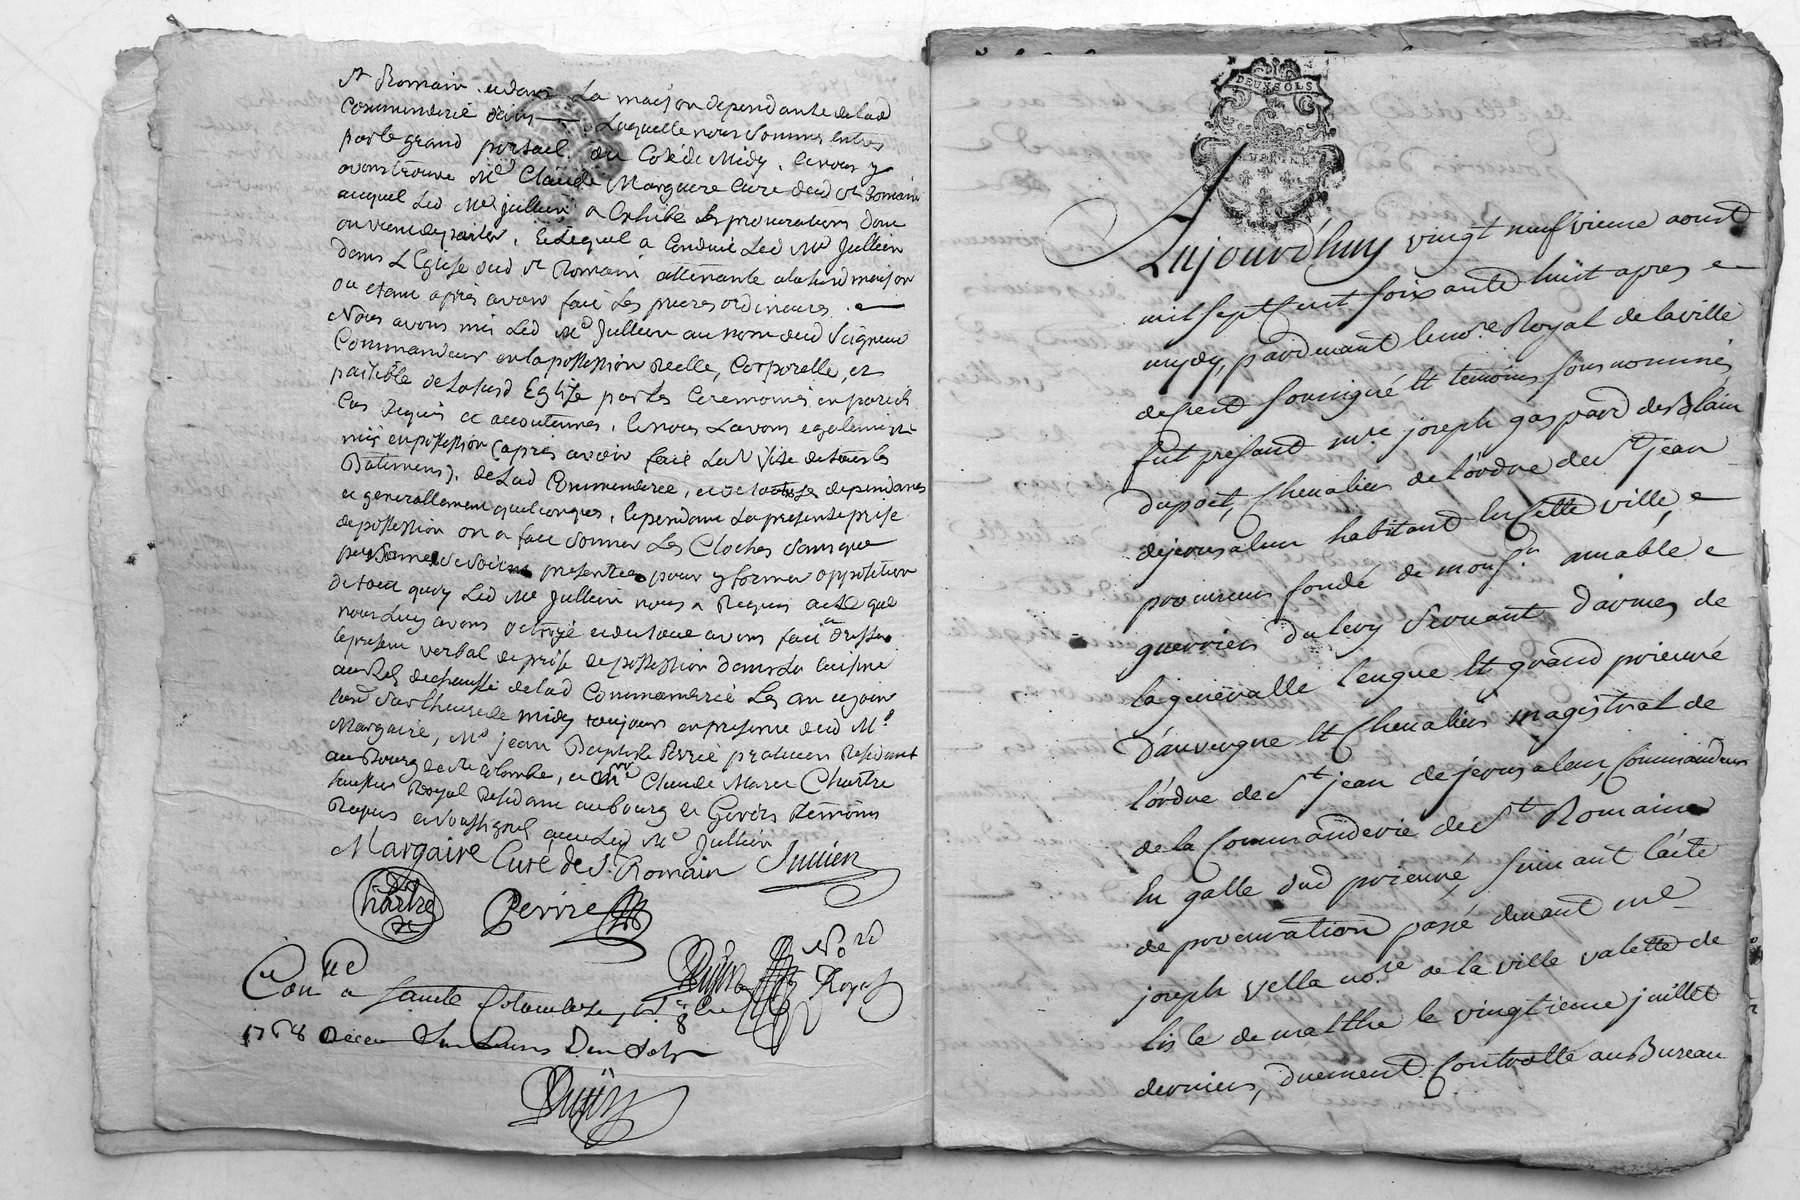 St Romain. et dans La maison dependante de lad
Commenderie Laquelle nous Sommes Entrés
par le grand portail du Coté de Midy, et nous y
avons trouvé Me Claude Margaire Curé dud St Romain
auquel Led Me Jullien a Exhibé La procuration dont
on vient de parler, Lequel a Conduit Led Me Jullien
dans L'Eglise dud St Romain attenante a lad maison
ou etant après avoir fait Les prieres ordinaires.
Nous avons mis Led Me Jullien au nom dud Seigneur
Commandeur en la possession Reelle, Corporelle, et
paisible de Lad Eglise par Les Ceremonies en pareil
Cas Requis et accoutumés, et nous L'avons egalement
mis en possession (après avoir fait La Visite de tous les
Batimens) de Lad Commenderie, et de toutes ses dependances
et generallement quelconques, Cependant La presente prise
de possession on a fait Sonner Les Cloches Sans que
personne se soit presentée pour y former opposition
de tout quoy Led Me Jullien nous a Requis acte que
nous Luy avons octroyé et du tout avons fait et dressé
le present verbal de prise de possession dans La Cuisine
au Rez de chaussé de lad Commanderie Les an et jour
Sur L'heure de midy toujours en presence dud Me
Margaire, Me jean Baptiste Perrie praticien Residant
au Bourg de Ste Colombe, et Me Claude Marie Chartre
huissier Royal Residant au bourg de Givors Temoins
Requis et Soussignés avec Led Me Jullien
Margaire Curé de St. Romain Jullien
Chartre
Perrie
No re
Royal
Con lle a Sainte Colombe, le
1768 Receu
Aujourd'huy vingt neuf vieme aoust
mil sept Cent soixante huit apres
mydy, pardevant le nore Royal de la ville
de Crest soussigné et temoins sous nommés
fut presant mre joseph gaspard de Blain
dupoet, Chevalier de l'ordre de St jean
de jerusalem habitant En Cette ville,
procureur fondé de monsr. amable
guerrier Dulery Servant D'armes de
la generalle lengue Et grand prieuré
D'auvergne Et Chevalier magistral de
l'ordre de St jean de jerusalem, Commandeur
de la Commanderie de St Romain
En galle dud prieuré, suivant l'acte
de procuration passé devant me
joseph vella nore de la ville valette de
lisle de malthe le vingtieme juillet
dernier, duement Controllé au Bureau
DEUX SOLS